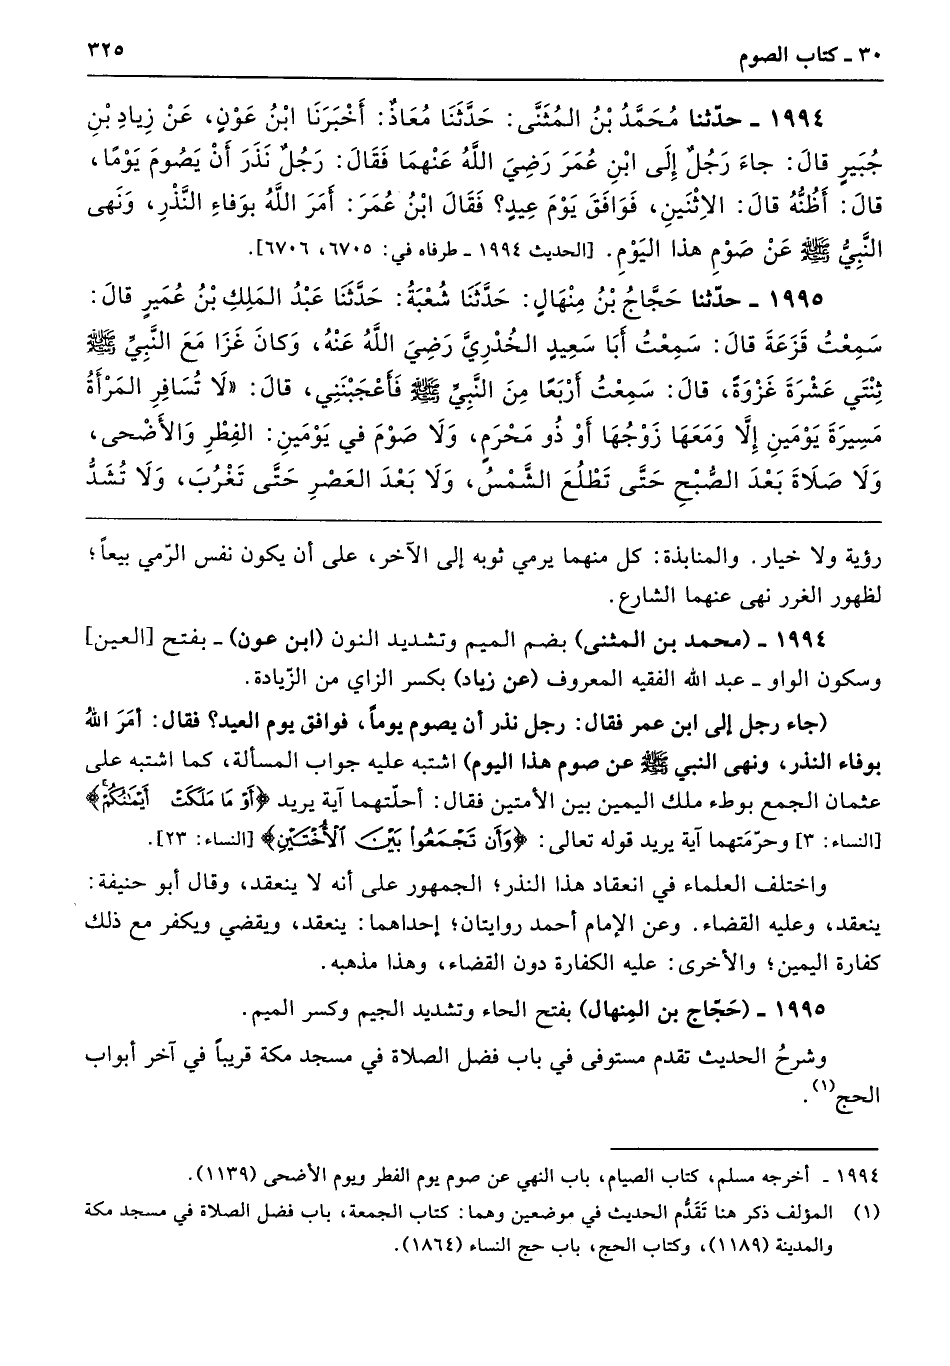 ٣٠ ـ كتاب الصوم
٣٢٥
١٩٩٤ ـ حدّثنا مُحَمَّدُ بْنُ المُثَنَّى: حَدَّثَنَا مُعَاذٌ: أَخْبَرَنَا ابْنُ عَوْنٍ، عَنْ زِيادِ بْنِ
جُبَيرٍ قالَ: جاءَ رَجُلٌ إِلَى ابْنِ عُمَرَ رَضِيَ اللَّهُ عَنْهُمَا فَقَالَ: رَجُلٌ نَذَرَ أَنْ يَصُومَ يَوْمًا،
قالَ: أَظُنُّهُ قالَ: الاِثْنَينِ، فَوَافَقَ يَوْمَ عِيدٍ؟ فَقَالَ ابْنُ عُمَرَ: أَمَرَ اللَّهُ بِوَفاءِ النَّذْرِ، وَنَهى
النَّبِيُّ ﷺ عَنْ صَوْمِ هذا اليَوْمِ. [الحديث ١٩٩٤ ـ طرفاه في: ٦٧٠٥، ٦٧٠٦].
١٩٩٥ ـ حدّثنا حَجَّاجُ بْنُ مِنْهَالٍ: حَدَّثَنَا شُعْبَةُ: حَدَّثَنَا عَبْدُ المَلِكِ بْنُ عُمَيرٍ قالَ:
سَمِعْتُ قَزَعَةَ قالَ: سَمِعْتُ أَبَا سَعِيدٍ الخُدْرِيَّ رَضِيَ اللَّهُ عَنْهُ، وَكانَ غَزَا مَعَ النَّبِيِّ ﷺ
ثِنْتَي عَشْرَةَ غَزْوَةً، قالَ: سَمِعْتُ أَرْبَعًا مِنَ النَّبِيِّ ﷺ فَأَعْجَبْنَنِي، قالَ: «لَا تُسَافِرِ المَرْأَةُ
مَسِيرَةَ يَوْمَينِ إِلَّا وَمَعَهَا زَوْجُهَا أَوْ ذُو مَحْرَمٍ، وَلَا صَوْمَ في يَوْمَينِ: الفِطْرِ وَالأَضْحى،
وَلَا صَلَاةَ بَعْدَ الصُّبْحِ حَتَّى تَطْلُعَ الشَّمْسُ، وَلَا بَعْدَ العَصْرِ حَتَّى تَغْرُبَ، وَلَا تُشَدُّ
رؤية ولا خيار. والمنابذة: كل منهما يرمي ثوبه إلى الآخر، على أن يكون نفس الرّمي بيعاً؛
لظهور الغرر نهى عنهما الشارع.
١٩٩٤ ـ (محمد بن المثنى) بضم الميم وتشديد النون (ابن عون) ـ بفتح [العين]
وسكون الواو ـ عبد الله الفقيه المعروف (عن زياد) بكسر الزاي من الزّيادة.
(جاء رجل إلى ابن عمر فقال: رجل نذر أن يصوم يوماً، فوافق يوم العيد؟ فقال: أمَرَ اللهُ
بوفاء النذر، ونهى النبي ﷺ عن صوم هذا اليوم) اشتبه عليه جواب المسألة، كما اشتبه على
عثمان الجمع بوطء ملك اليمين بين الأمتين فقال: أحلّتهما آية يريد ﴿أَوْ مَا مَلَكَتْ أَيْمَٰنُكُمْ﴾
[النساء: ٣] وحرّمَتهما آية يريد قوله تعالى: ﴿وَأَن تَجْمَعُوا بَيْنَ ٱلْأُخْتَيْنِ﴾ [النساء: ٢٣].
واختلف العلماء في انعقاد هذا النذر؛ الجمهور على أنه لا ينعقد، وقال أبو حنيفة:
ينعقد، وعليه القضاء. وعن الإمام أحمد روايتان؛ إحداهما: ينعقد، ويقضي ويكفر مع ذلك
كفارة اليمين؛ والأخرى: عليه الكفارة دون القضاء، وهذا مذهبه.
١٩٩٥ ـ (حَجّاج بن المِنهال) بفتح الحاء وتشديد الجيم وكسر الميم.
وشرحُ الحديث تقدم مستوفى في باب فضل الصلاة في مسجد مكة قريباً في آخر أبواب
الحج(١).
١٩٩٤ ـ أخرجه مسلم، كتاب الصيام، باب النهي عن صوم يوم الفطر ويوم الأضحى (١١٣٩).
(١) المؤلف ذكر هنا تَقَدُّم الحديث في موضعين وهما: كتاب الجمعة، باب فضل الصلاة في مسجد مكة
والمدينة (١١٨٩)، وكتاب الحج، باب حج النساء (١٨٦٤).